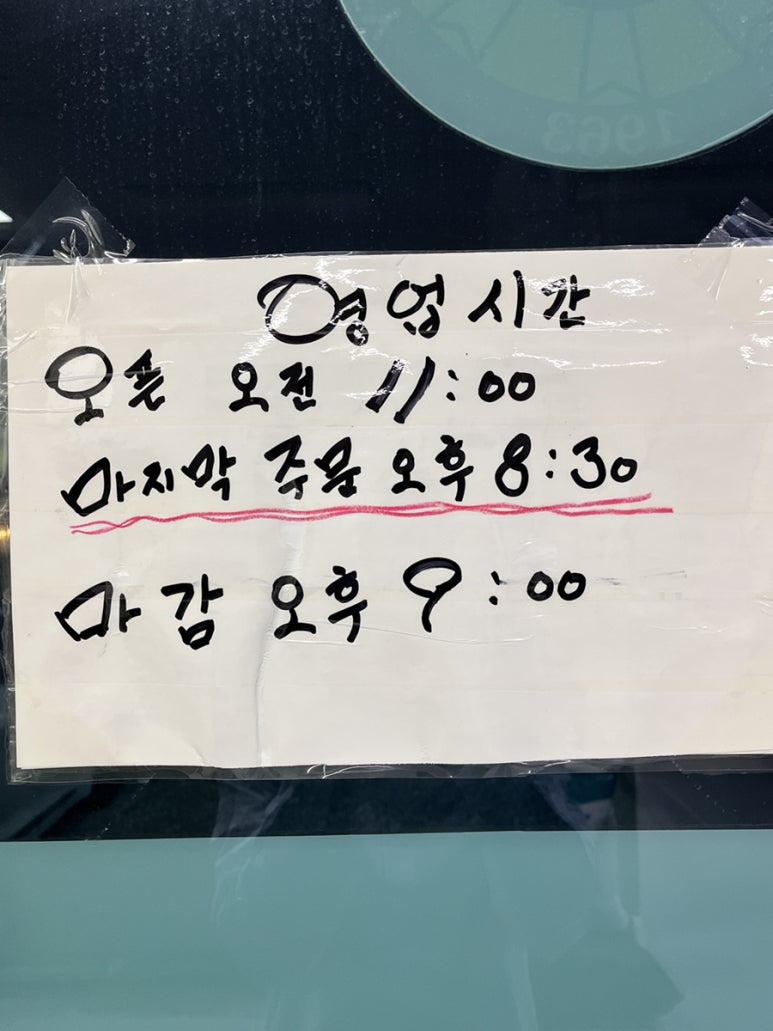 1963
영업시간
오픈 오전 11:00
마지막 주문 오후 8:30
마감 오후 9:00